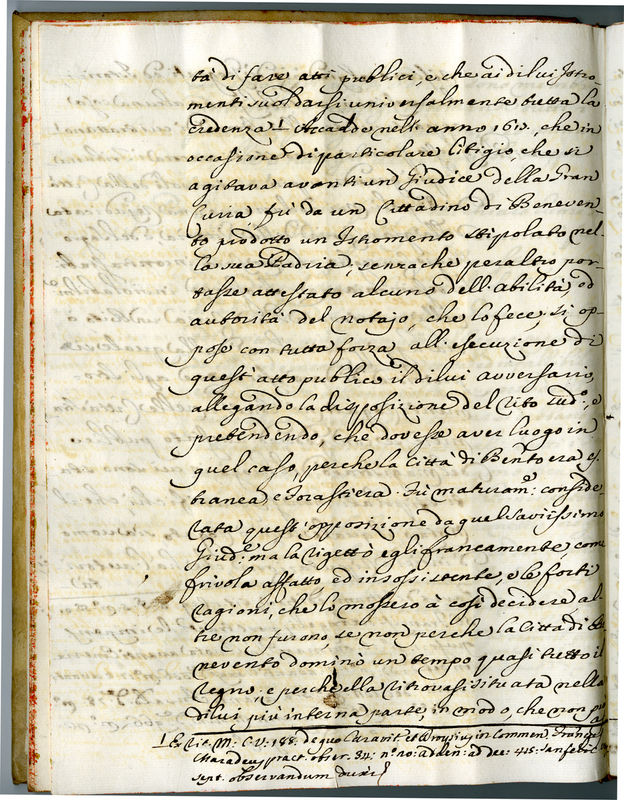 tà di fare atti publici, e che ai di lui Istro-
menti suol darsi universalmente tutta la
credenza 1 Accadde nell'anno 161 . che in
occasione di particolare litigio, che si
agitava avanti un Giudice della Gran
Curia fù da un Cittadino di Beneven-
to prodotto un Istromento stipolato nel-
la sua Padria, senzache peraltro por-
tasse attestato alcuno dell'abilità ed
autorità del notajo, che lo fece; si op-
pose con tutta forza all'esecuzione di
quest'atto publico il di lui avversario,
allegando la disposizione del Rito sud.o, e
pretendendo, che dovesse aver luogo in
quel caso, perche la Città di Ben.to era es-
tranea, e forastiera. Fù maturam.e conside-
rata quest'opposizione da quel Saviissimo
Giud.e, ma la rigettò egli francamente, come
frivola affatto, ed insossistente, e le forti
ragioni, che lo mossero à così decidere, al-
tre non furono, se non perche la Città di Be-
nevento dominò un tempo quasi tutto il
Regno, e perche ella ritrovasi situata nella
di lui più interna parte, in modo, che non può
1 Ex Rit. M: C: V: 188: de quo in Commen.
Maradeus pract. obser. 84: n.o 10: ad dec: 415: Sanfelic
sept. observandum duxi